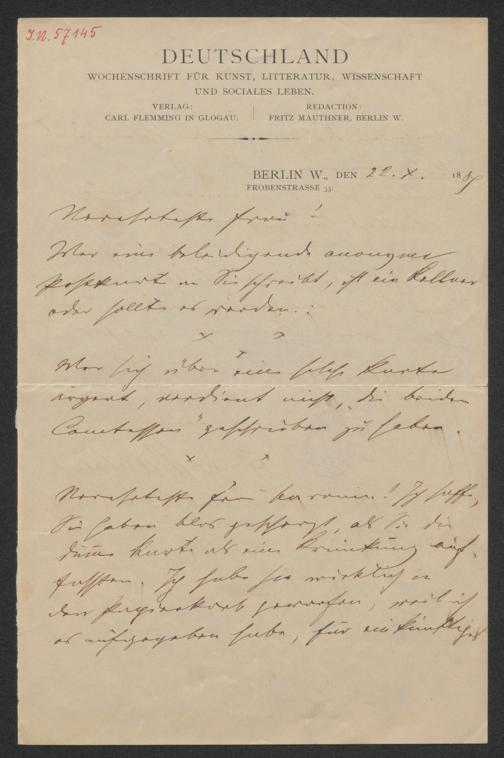 I.N. 57145
DEUTSCHLAND
WOCHENSCHRIFT FÜR KUNST, LITTERATUR, WISSENSCHAFT
UND SOCIALES LEBEN.
VERLAG:
CARL FLEMMING IN GLOGAU.
REDACTION:
FRITZ MAUTHNER, BERLIN W.
BERLIN W., DEN 22. X. 1889
FROBENSTRASSE 33.
Verehrteste Frau!
Wer eine beleidigende anonyme
Postkart an Sie schreibt, ist ein Kellner
oder sollte es werden.
x x
Wer sich über eine solche Karte
ärgert, verdient nicht, „die beiden
Comtessen" geschrieben zu haben.
x x
Verehrteste Frau Baronin! Ich hoffe,
Sie haben blos gescherzt, als Sie die
dumme Karte als eine Kränkung auf-
fassten. Ich habe sie wirklich in
den Papierkorb geworfen, weil ich
es aufgegeben habe, für ein künftiges